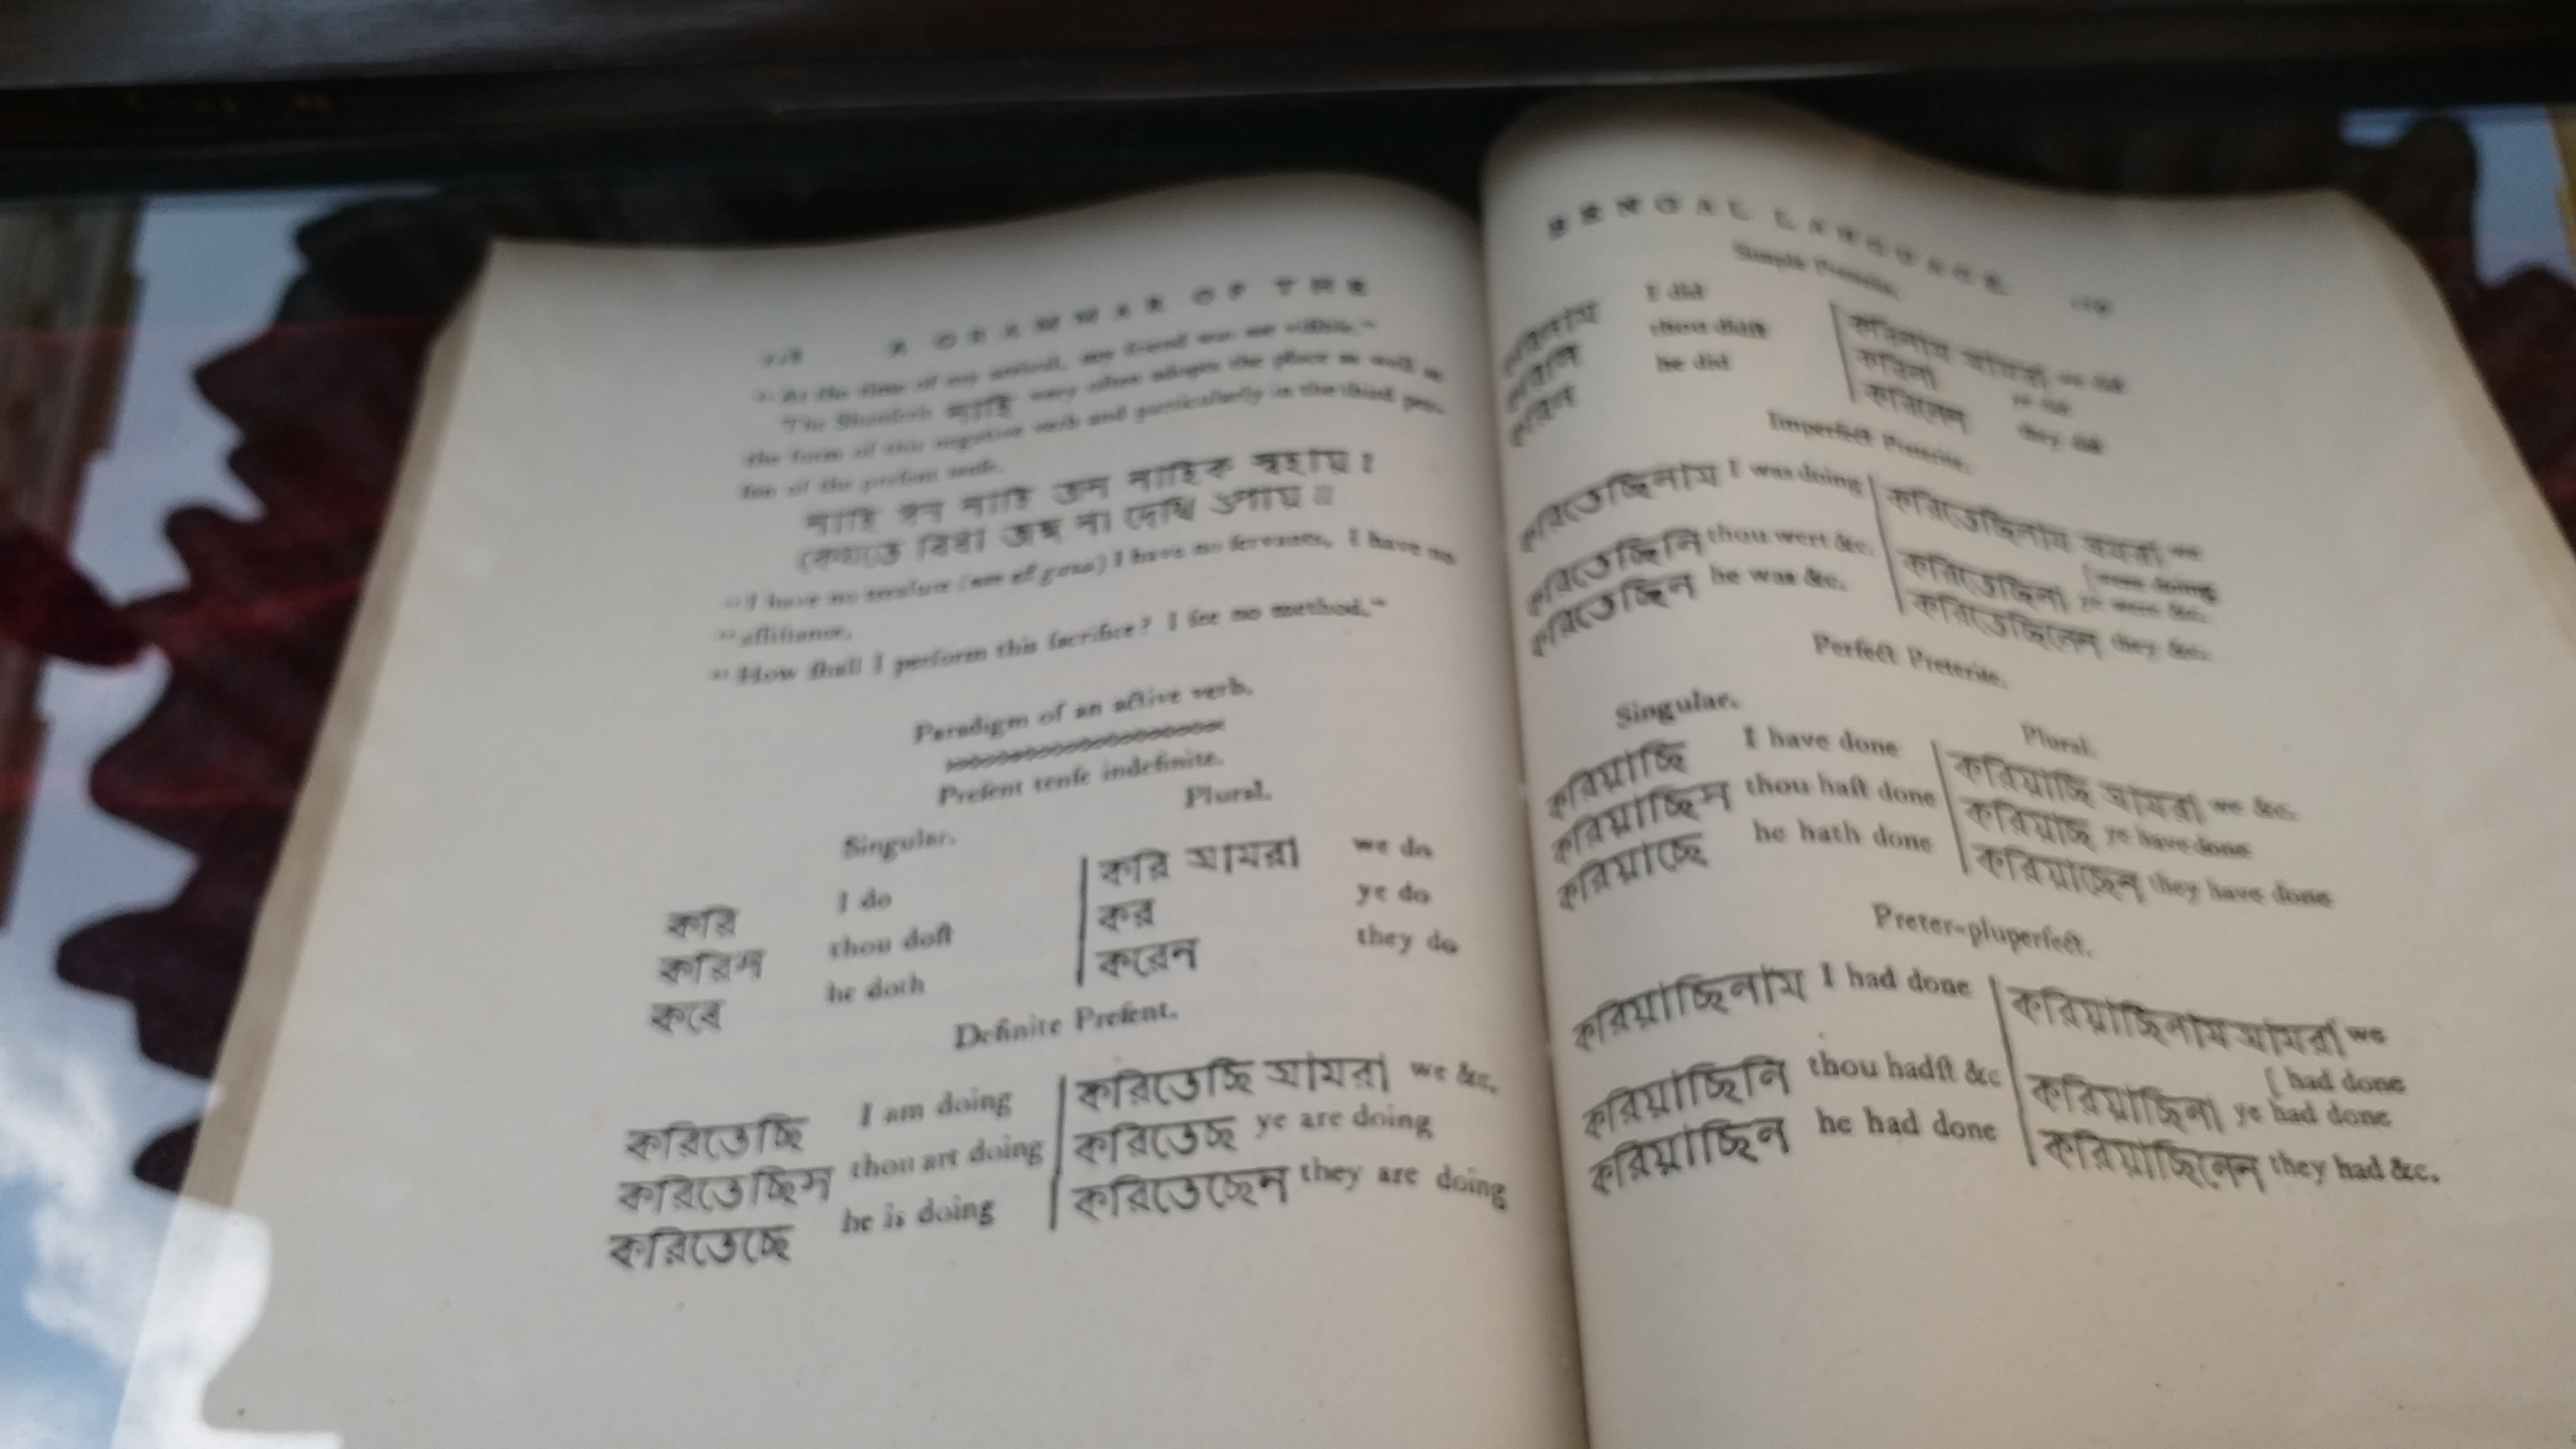 A GRAMMAR OF THE
"At the time of my arrival, my friend was not within."
The Shanscrit নাহি very often adopts the place as well as
the form of this negative verb and particularly in the third per-
son of the present tense.
নাহি ধন নাহি জন নাহিক সহায় ৷
কেমতে করিব যজ্ঞ না দেখি উপায় ৷৷
"I have no treasure I have no servants, I have no
"assistance.
"How shall I perform this sacrifice? I see no method."
Paradigm of an active verb.
Present tense indefinite.
Singular. Plural.
করি I do করি আমরা we do
করিস thou dost কর ye do
করে he doth করেন they do
Definite Present.
করিতেছি I am doing করিতেছি আমরা we &c.
করিতেছিস thou art doing করিতেছ ye are doing
করিতেছে he is doing করিতেছেন they are doing
BENGAL LANGUAGE.
Simple Preterite.
করিলাম I did করিলাম আমরা we did
করিলি thou didst করিলা ye did
করিল he did করিলেন they did
Imperfect Preterite.
করিতেছিলাম I was doing করিতেছিলাম আমরা we
(were doing
করিতেছিলি thou wert &c. করিতেছিলা ye were &c.
করিতেছিল he was &c. করিতেছিলেন they &c.
Perfect Preterite.
Singular. Plural.
করিয়াছি I have done করিয়াছি আমরা we &c.
করিয়াছিস thou hast done করিয়াছ ye have done
করিয়াছে he hath done করিয়াছেন they have done
Preter-pluperfect.
করিয়াছিলাম I had done করিয়াছিলাম আমরা we
(had done
করিয়াছিলি thou hadst &c করিয়াছিলা ye had done
করিয়াছিল he had done করিয়াছিলেন they had &c.